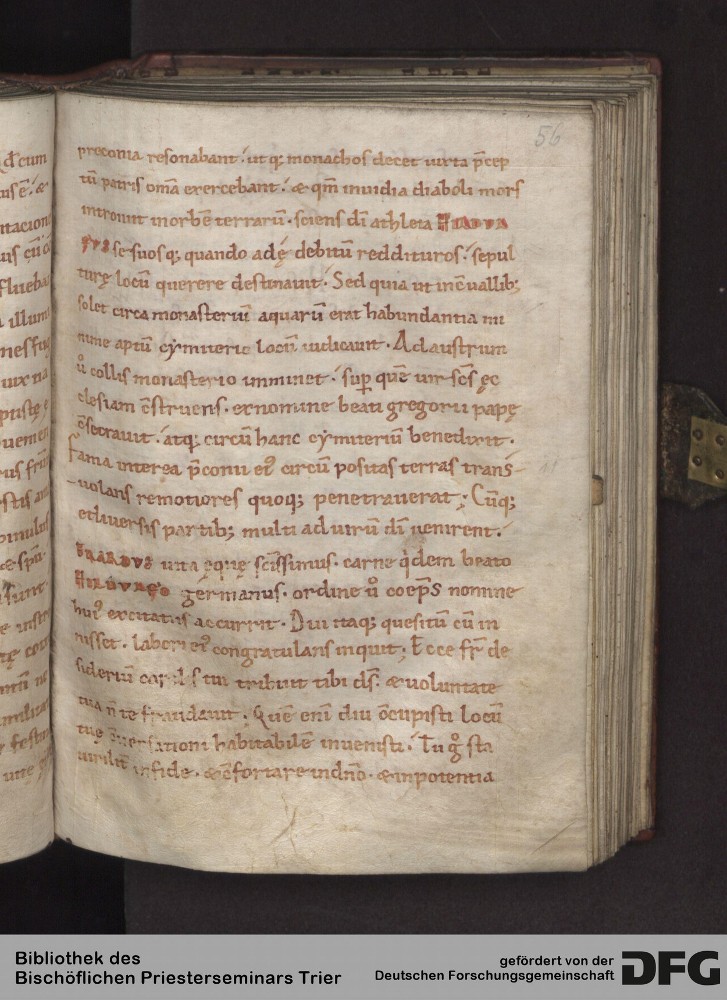 56
preconia resonabant. utq; monachos decet iuxta p̄cep
tū patris om̄a exercebant. & qm̄ inuidia diaboli mors
introiuit inorbē terrarū. sciens dī athleta HILDVL
FVS se suosq; quando adę debitū reddituros. sepul
turę locū querere destinauit. Sed quia ut in c̄uallib;
solet circa monasteriū aquarū erat habundantia mi
nime aptū cymiterio locū iudicauit. Ad austrum
ů collis monasterio imminet. sup quē uir sc̄s ęc
clesiam c̄struens. ex nomine beati gregorii papę
c̄secrauit. atq; circū hanc cymiteriū benedixit.
Fama interea p̄conii ei' circū positas terras trans-
uolans remotiores quoq; penetrauerat; Cūq;
et diuersis partib; multi ad uirū dī uenirent.
ERARDVS uita ęquę sc̄issimus. carne q̇dem beato
HILDVLFO germanus. ordine ů coep̄s nomine
hui' excitatus accurrit. Diu itaq; quesitū cū in
uenisset. labori ei' congratulans inquit; Ecce fr̄ de
siderium cordis tui tribuit tibi d̄s. & uoluntate
tua n̄ te fraudauit. Quē eni diu c̄cupisti locū
tuę c̄uersationi habitabilē inuenisti. Tu g̊ sta
uirilit̄ in fide. & c̄fortare in dn̄o. & in potentia
d̄ctum
Bibliothek des
Bischöflichen Priesterseminars Trier
gefördert von der
Deutschen Forschungsgemeinschaft
DFG